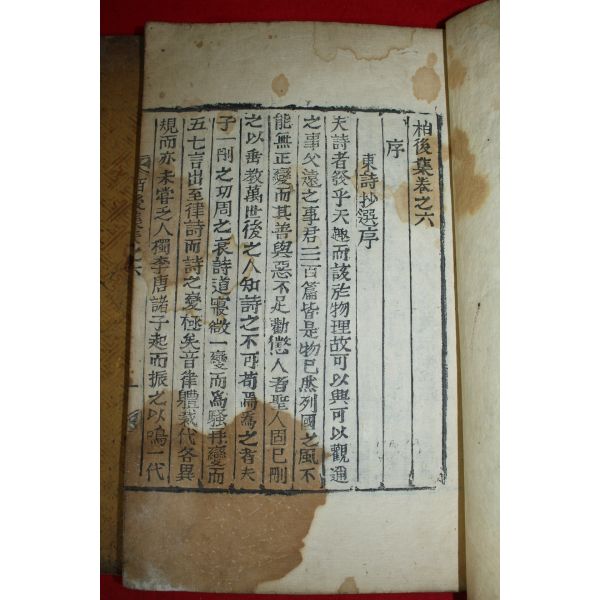 柏後集卷之六
序
東詩抄選序
夫詩者發乎天趣而該於物理故可以興可以觀邇
之事父遠之事君三百篇皆是物已然列國之風不
能無正變而其善與惡不足勸懲人者聖人固已刪
之以垂敎萬世後之人知詩之不可苟焉爲之者夫
子一刪之功周之衰詩道寢微一變而爲騷再變而
五七言出至律詩而詩之變極矣音律體裁代各異
規而亦未嘗乏人獨李唐諸子起而振之以鳴一代